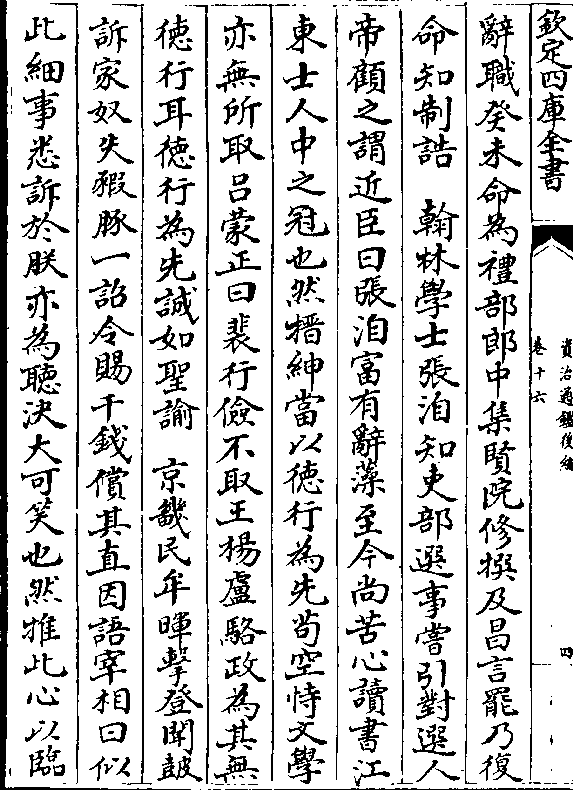 欽定四庫全書
資治通鑑後編
卷十六
四
辭職癸未命為禮部郎中集賢院修撰及昌言罷乃復
命知制誥　翰林學士張洎知吏部選事嘗引對選人
帝顧之謂近臣曰張洎富有辭藻至今尚苦心讀書江
東士人中之冠也然搢紳當以徳行為先茍空恃文學
亦無所取吕蒙正曰裴行儉不取王楊盧駱政為其無
徳行耳徳行為先誠如聖諭　京畿民牟暉擊登聞鼓
訴家奴失豭豚一詔令賜千錢償其直因語宰相曰似
此細事悉訴於朕亦為聽決大可笑也然推此心以臨